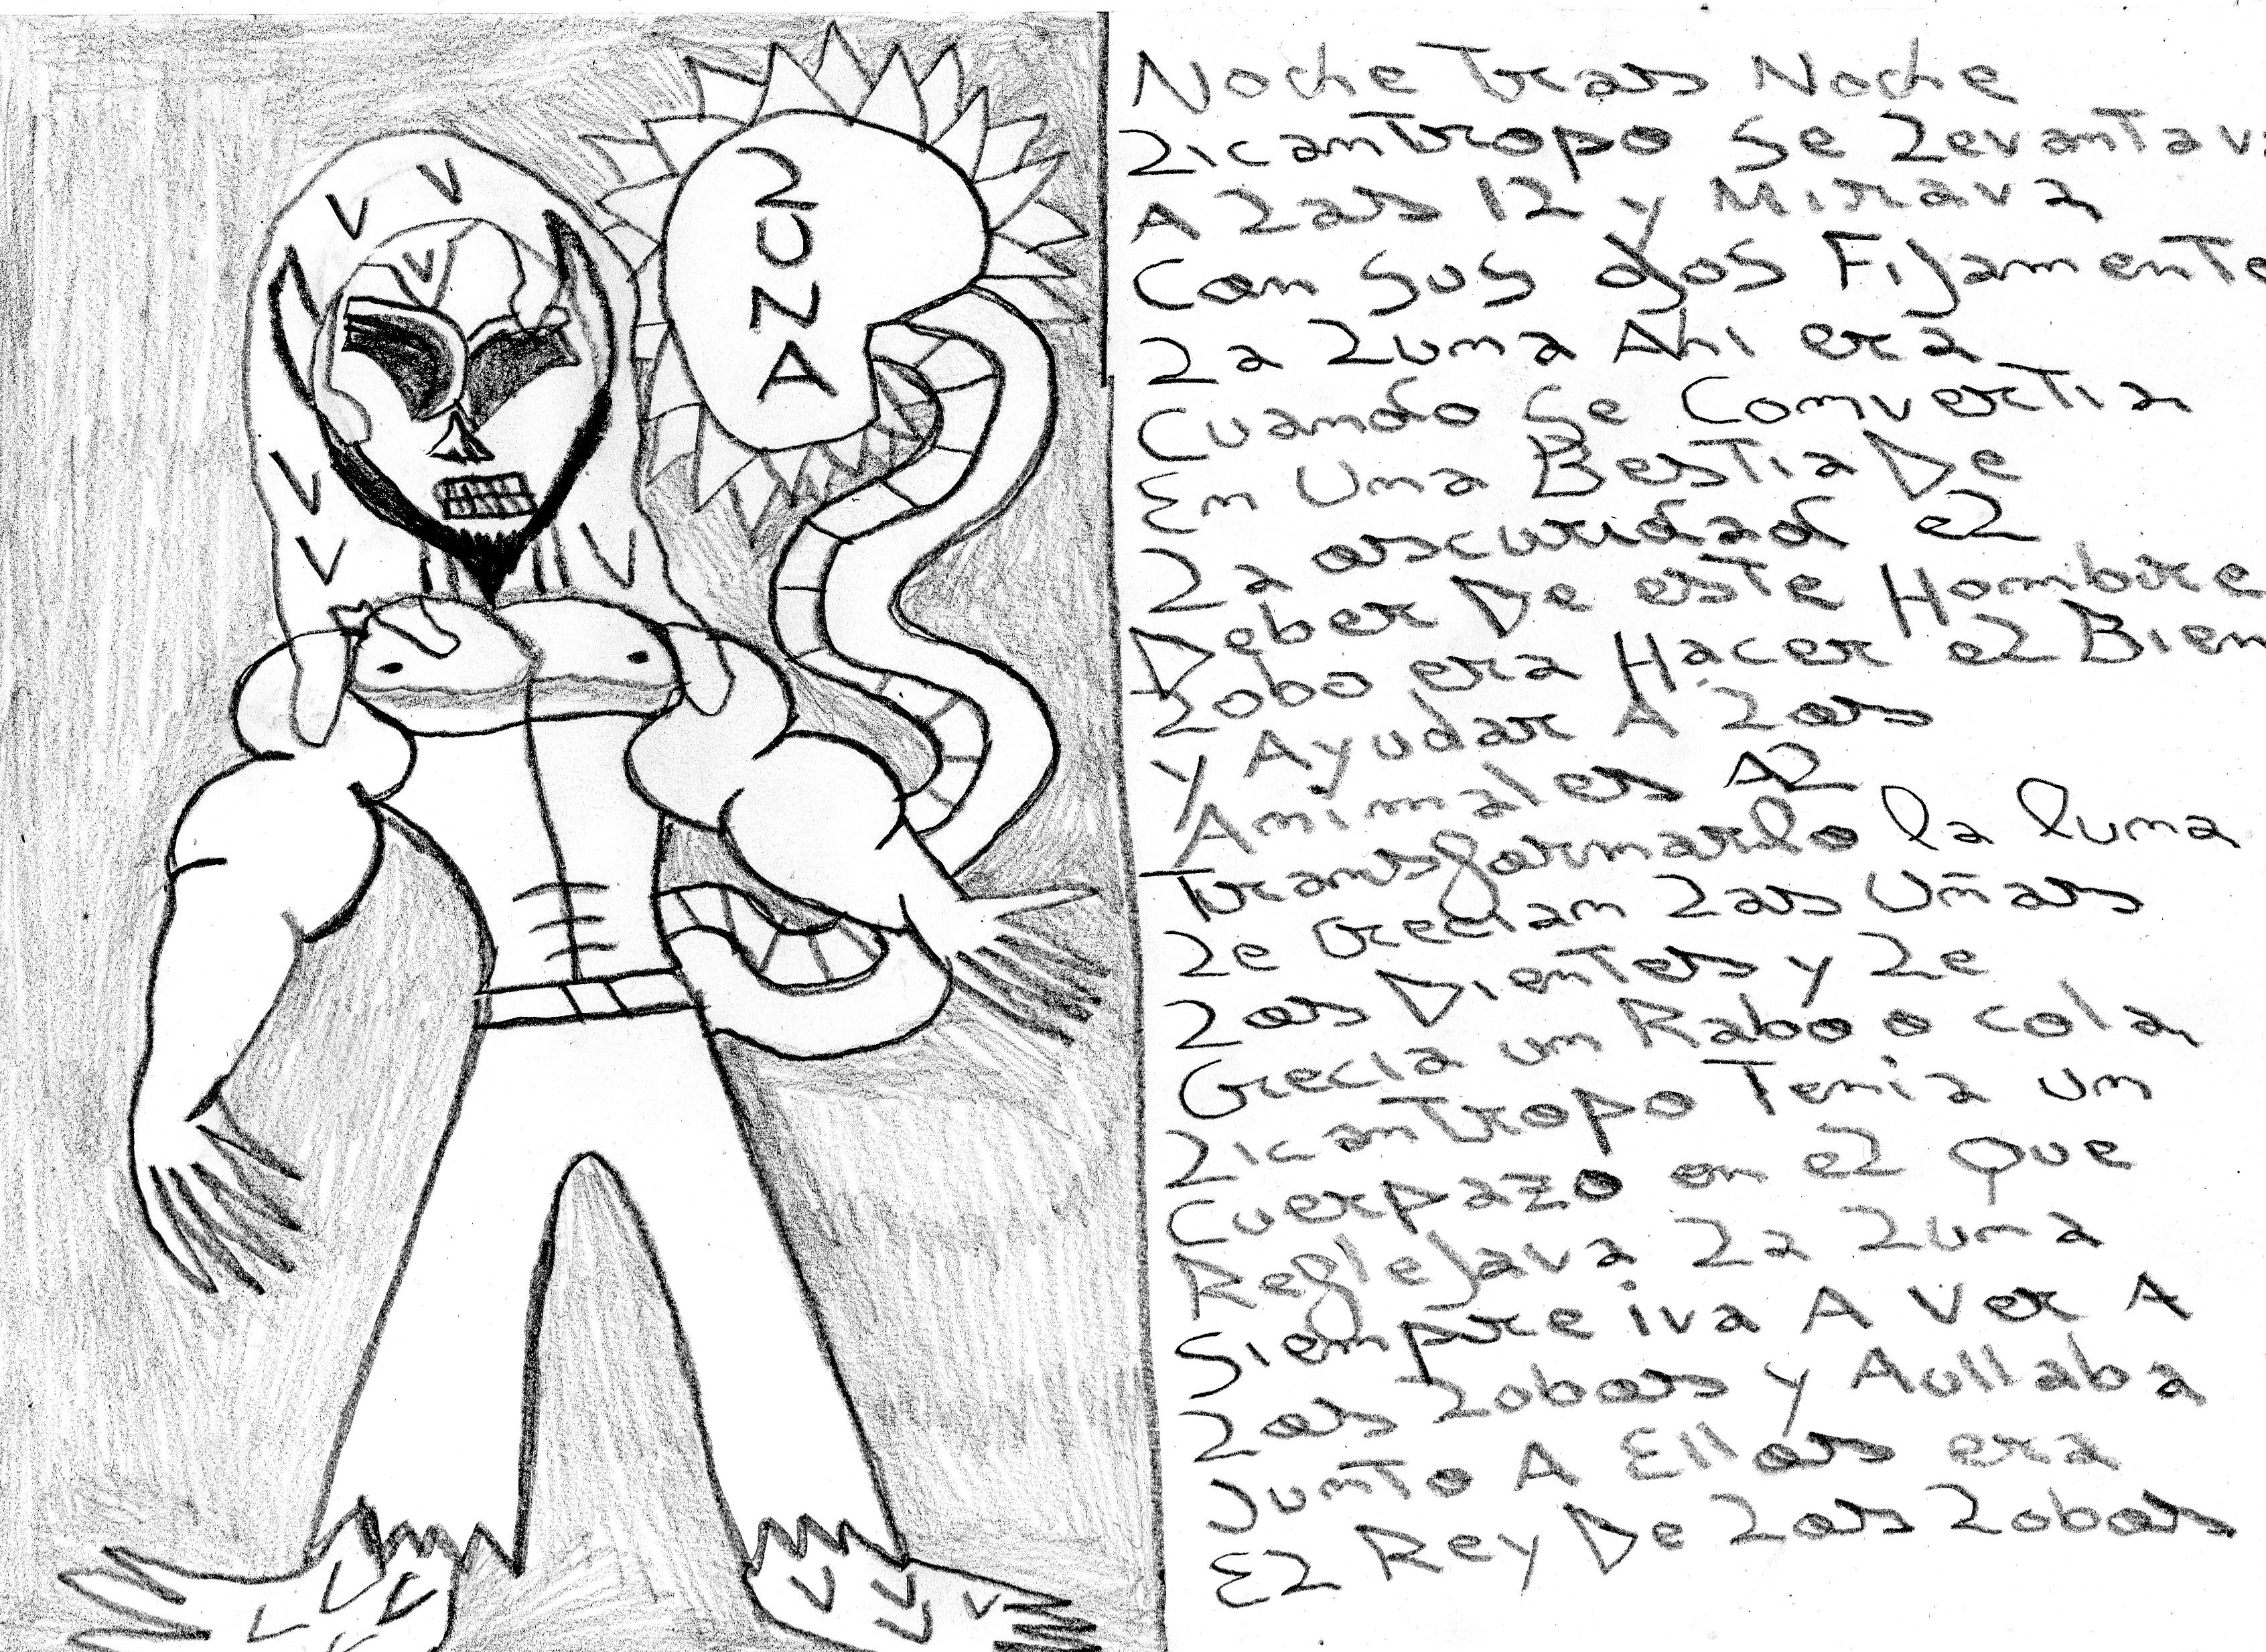 LUNA
Noche Tras Noche
Licantropo Se Levantava
A Las 12 y Mirava
Con Sus ojos Fijamente
La Luna Ahi era
Cuando Se Comvertia
En Una Bestia De
La oscuridad el
Deber De este Hombre
Lobo era Hacer el Bien
y Ayudar A Los
Animales Al
Transformarlo la luna
Le Crecian Las Uñas
Los Dientes y Le
Crecia un Rabo o cola
Licantropo Tenia un
Cuerpazo en el Que
Reflejava La Luna
Siempre iva A Ver A
Los Lobos y Aullaba
Junto A Ellos era
El Rey De Los Lobos